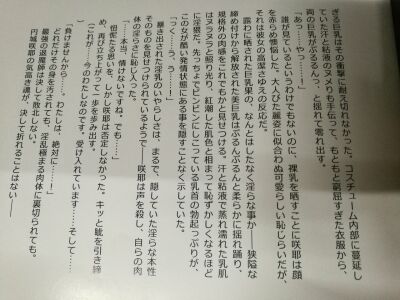 ぎる巨乳はその衝撃に耐え切れなかった。コスチューム内部に蔓延し
ていた汗と粘液のヌメりも手伝って、もともと窮屈すぎた衣服から、
両の巨乳がぶるんっ、と揺れて零れ出す。
「あっ……やっ……！」
誰が見ているというわけでもないのに、裸乳を晒すことに咲耶は顔
を赤らめ懊悩した。大人びた麗姿に似合わぬ可愛らしい恥じらいだが、
それは彼女の高潔さゆえの反応だ。
露わに晒された巨乳果の、なんとはしたなく淫らな事か――狭隘な
締め付けから解放された美巨乳はぷるんぷるんと柔らかに揺れ踊り、
規格外の肉感をこれでもかと見せつける。汗と粘液で蒸れ濡れた乳肌
はヌラヌラと照り光り、紅潮した肌色と相まって恥ずかしくなるほど
に淫猥だ。先っちょでピンピンにしこっている乳首の勃起っぷりが、
この女が酷い発情状態にある事を隠すことなく示していた。
「っく……う、うっ……！」
暴き出された淫乳のいやらしさは、まるで、隠していた淫らな本性
そのものを見せつけられているようで――咲耶は声を殺し、自らの肉
体の淫らさに恥じ入った。
「……本当、情けないですね。でも……」
忸怩たる思いを、しかし咲耶は否定しなかった。キッと眦を引き締
め、再び立ち上がって一歩を歩み出す。
（これが……今のわたしなのです。受け入れています……そして――
「負けませんから……。わたしは、絶対に……！」
どれだけその身を汚されても、淫乱極まる肉体に裏切られても。
最強の退魔師は決して敗北しない。
円城咲耶の気高き魂が、決して折れることはない――